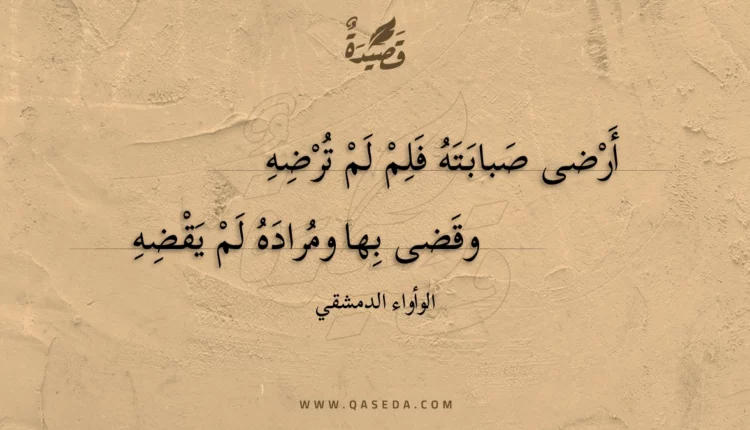 قَصِيْدَةٌ
أَرْضى صَبابَتَهُ فَلِمْ لَمْ تُرْضِهِ
وقَضى بِها ومُرادَهُ لَمْ يَقْضِهِ
الوأواء الدمشقي
WWW.QASEDA.COM